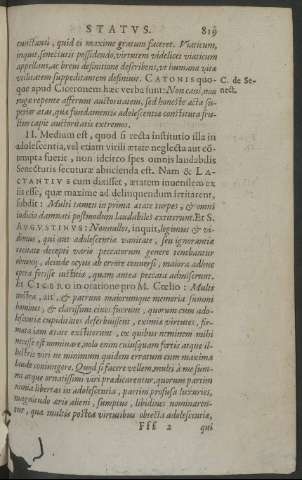 STATVS. 819
cunctanti, quid ei maxime gratum faceret. Viaticum,
inquit, senectutis possidendo, virtutem videlicet viaticum
appellans, ac brevi describens, ut humana vita
suppeditamentum definivit. CATONIS quo-
que apud Ciceronem hæc verba sunt: Non cani, non
rugæ repente afferunt auctoritatem, sed honeste acta su-
perior ætas, quæ fundamentis adolescentiæ constituta fru-
ctus capit auctoritatis extremos.
C. de Se-
nect.
II. Medium est, quod si recta institutio illa in
adolescentia, vel etiam virili ætate neglecta aut co̅-
rupta fuerit, non idcirco spes omnis laudabilis
Senectutis secuturæ abiicienda est. Nam & LA-
CTANTIVS cum dixisset, ætatem iuvenilem ex
iis esse, quæ maxime ad delinquendum irritarent,
subdit: Multi tamen in prima ætate turpes, & omni
iudicio damnati postmodum laudabiles extiterunt. Et S.
AVGVSTINVS: Nonnullos, inquit, legimus & vi-
dimus, qui aut adolescentiæ vanitate, seu ignorantia
recentes decepti variis peccatorum genere tenebantur
deinde ocyus ab errore conversi, maiora
opera fecisse iustitiæ, quam antea peccata admiserunt.
Et CICERO in oratione pro M. Cœlio: Multi
nostra, ait, & patrum maiorumque memoria summi
homines, & clarissimi cives fuerunt, quorum cum ado-
lescentiæ cupiditates deferbuissent, eximiæ virtutes, fir-
mata iam ætate exstiterunt, ex quibus neminem mihi
necesse est nominare, nolo enim cuiusquam fortis atque il-
lustris viri ne minimum quidem erratum cum maxima
laude coniungere. Quod si facere vellem, multi à me sum-
mi atque ornatissimi viri prædicarentur, quorum partim
nimia libertas in adolescentia, partim profusa luxuries,
magnitudo æris alieni, sumptus, libidines nominaren-
tur, quæ multis postea virtutibus obtecta adolescentiæ,
Fff 2 qui